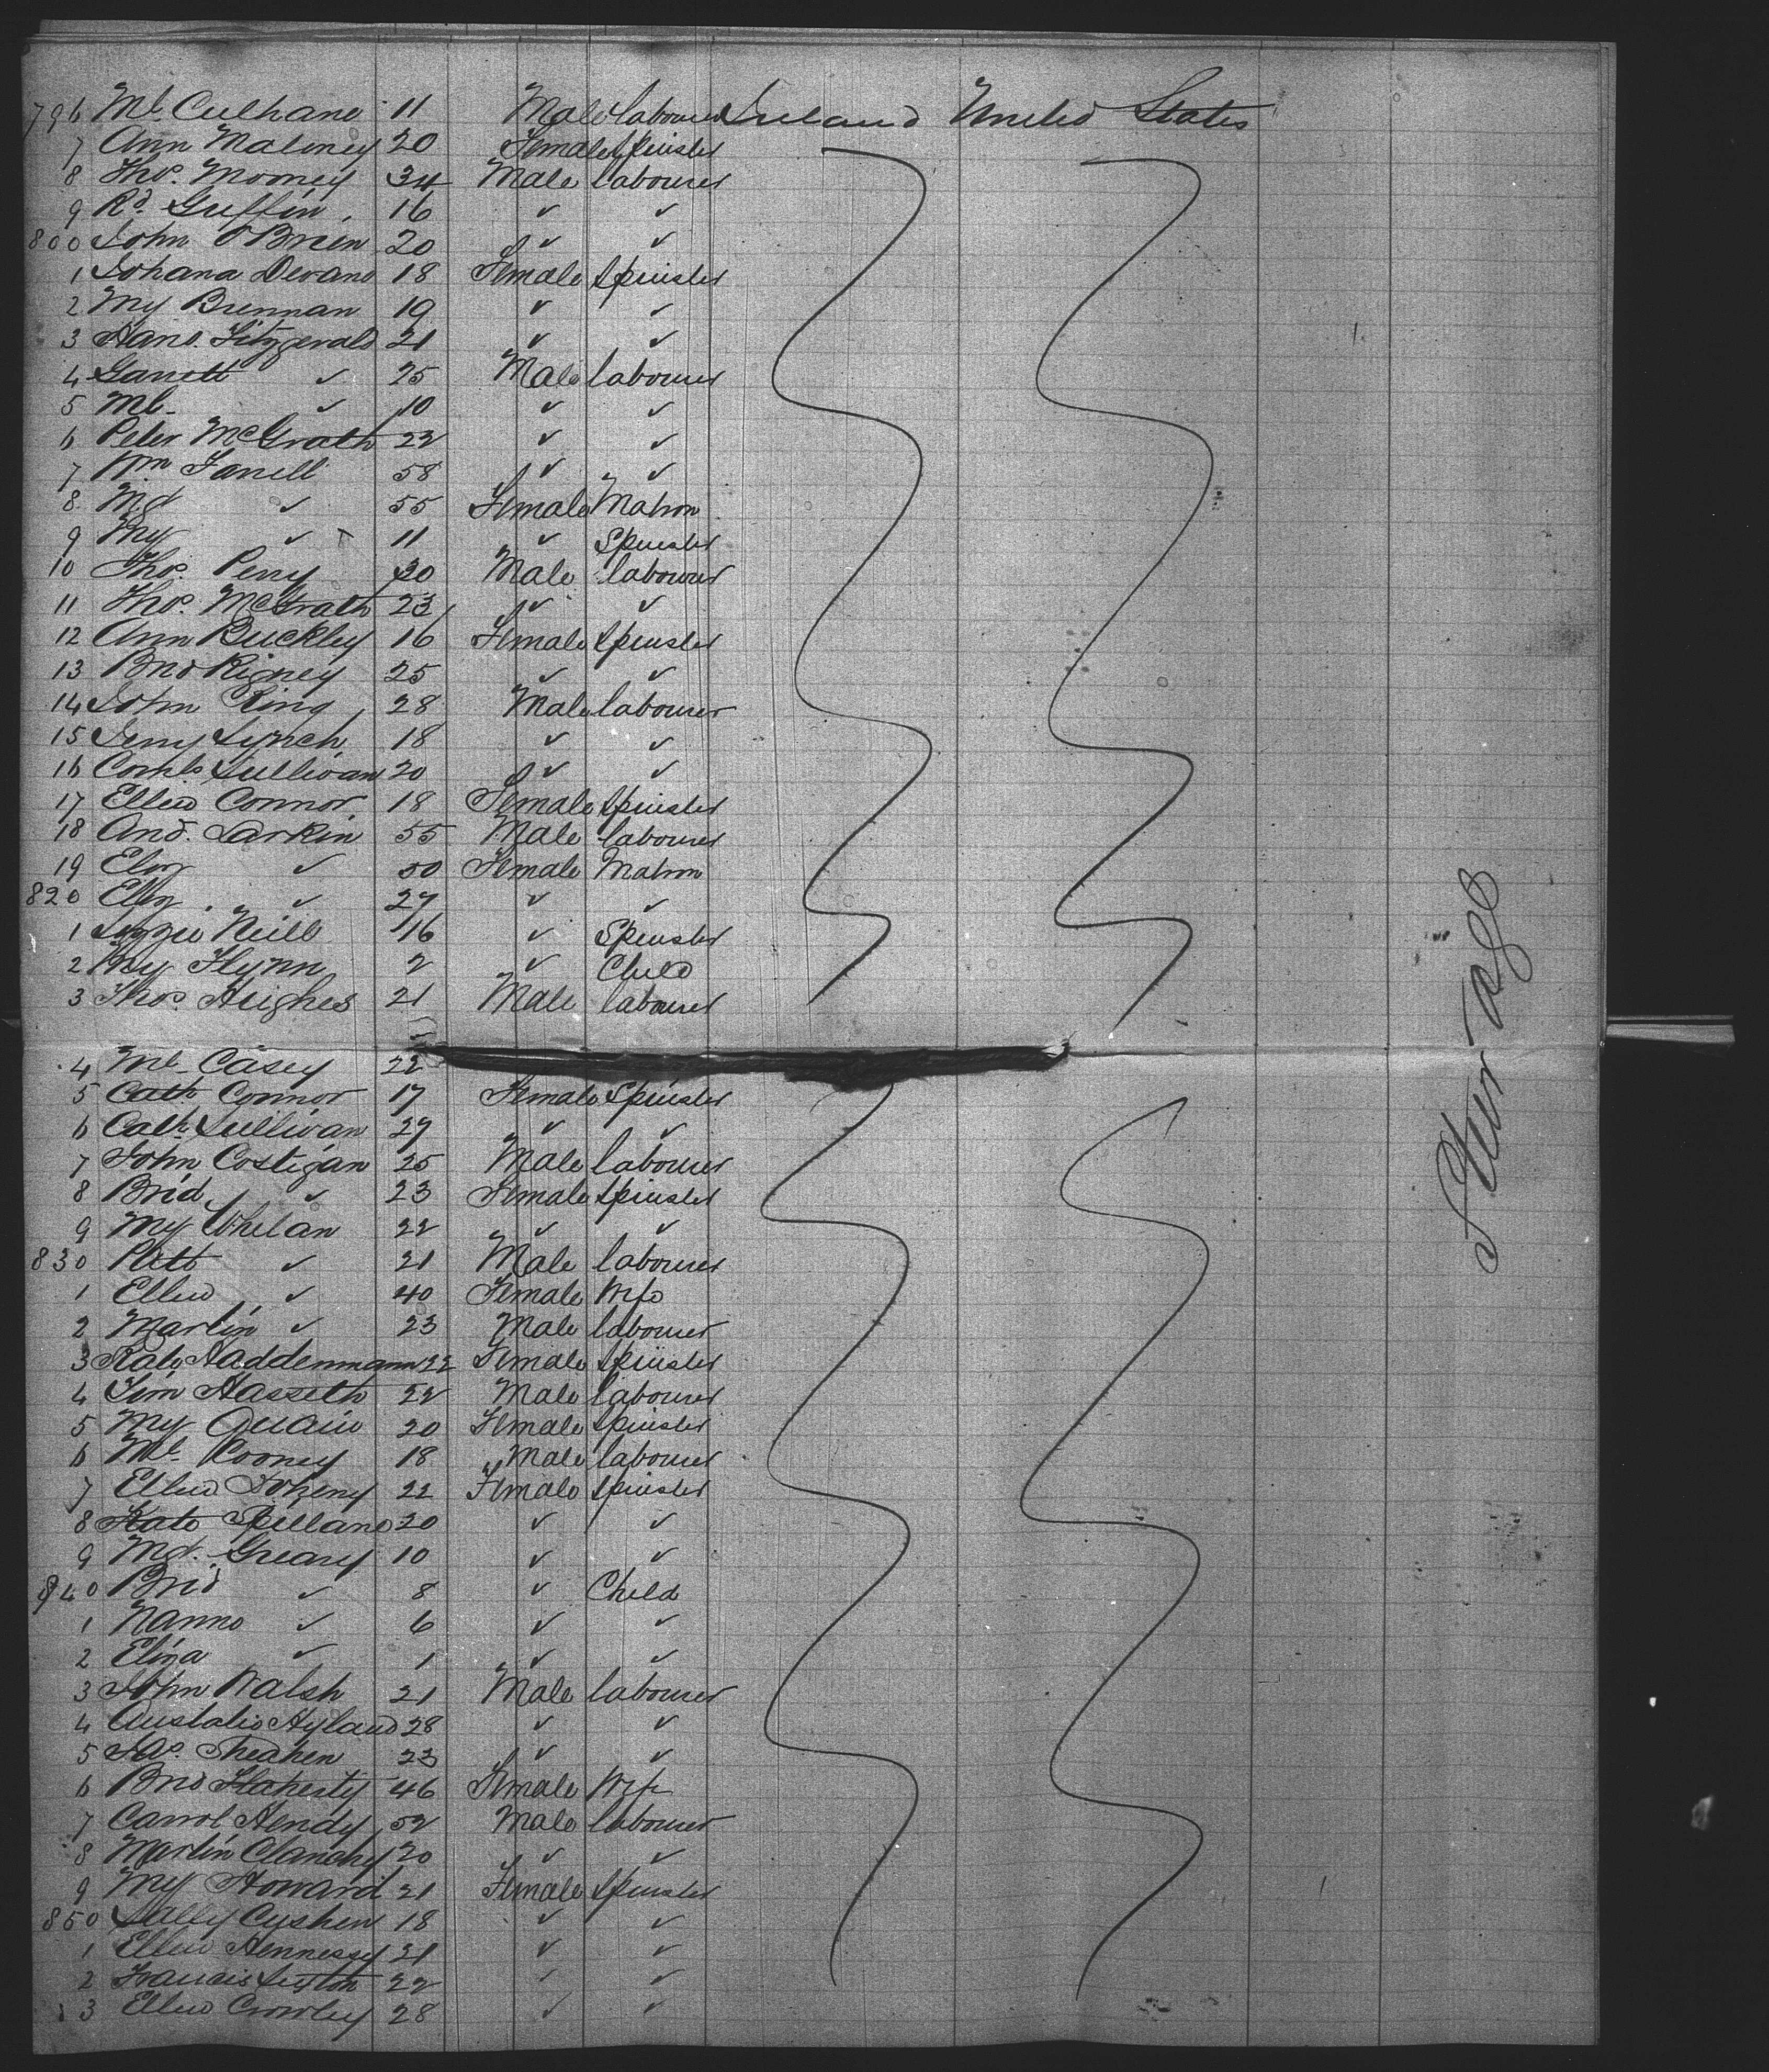 796 Ml. Culhane 11 Male labourer Ireland United States
7 Ann Maloney 20 Female Spinster
8 Thos. Mooney 34 Male labourer
9 Rd. Griffin 16 ✓ ✓
800 John O'Brien 20 ✓ ✓
1 Johana Devane 18 Female Spinster
2 My Brennan 19 ✓ ✓
3 Hano. Fitzgerald 21 ✓ ✓
4 Garrett ✓ 25 Male labourer
5 Ml. ✓ 10 ✓ ✓
6 Peter McGrath 22 ✓ ✓
7 Wm Farrell 58 ✓ ✓
8 Mgt ✓ 55 Female Matron
9 My ✓ 11 ✓ Spinster
10 Thos. Perry 30 Male labourer
11 Thos. McGrath 23 ✓ ✓
12 Ann Buckley 16 Female Spinster
13 Brid Rigney 25 ✓ ✓
14 John Ring 28 Male labourer
15 Jerry Lynch 18 ✓ ✓
16 Cornls Sullivan 20 ✓ ✓
17 Ellen Connor 18 Female Spinster
18 And. Larkin 55 Male labourer
19 Eliz ✓ 50 Female Matron
820 ✓ 27 ✓ ✓
1 Lizzie Neill 16 ✓ Spinster
2 My Flynn 2 ✓ Child
3 Thos. Hughes 21 Male labourer
4 Ml. Casey 22
5 Cath Connor 17 Female Spinster
6 Cath. Sullivan 27 ✓ ✓
7 John Costigan 25 Male labourer
8 Brid ✓ 23 Female Spinster
9 My Whelan 22 ✓ ✓
830 Patt ✓ 21 Male labourer
1 Ellen ✓ 40 Female Wife
2 Martin ✓ 23 Male labourer
3 Kate Haddenmann 22 Female Spinster
4 Tim Hasseth 22 Male labourer
5 My Quain 20 Female Spinster
6 Ml. Rooney 18 Male labourer
7 Ellen 22 Female Spinster
8 Kate Spillane 20 ✓ ✓
9 Mgt. Greary 10 ✓ ✓
840 Brid ✓ 8 ✓ Child
1 Nanno ✓ 6 ✓ ✓
2 Eliza ✓ 1 ✓ ✓
3 John Walsh 21 Male labourer
4 Hyland 28 ✓ ✓
5 Jas. Sheahen 23 ✓ ✓
6 Brid Flaherty 46 Female Wife
7 Carrol Hendy 52 Male labourer
8 Martin Clanchy 20 ✓ ✓
9 My Howard 21 Female Spinster
850 Sally Cushen 18 ✓ ✓
1 Ellen Hennessy 21 ✓ ✓
2 Francis Sexton 22 ✓ ✓
3 Ellen Crowley 28 ✓ ✓
Steerage